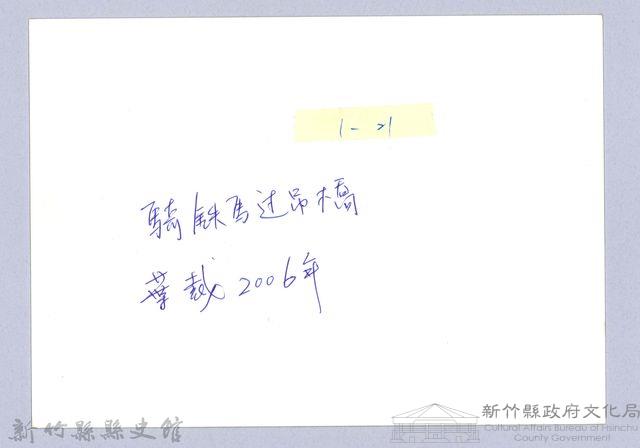 1-21
騎鉄馬过吊橋
葉裁2006年
新竹縣縣史館
新竹縣政府文化局
Cultural Affairs Bureau of Hsinchu
County Government